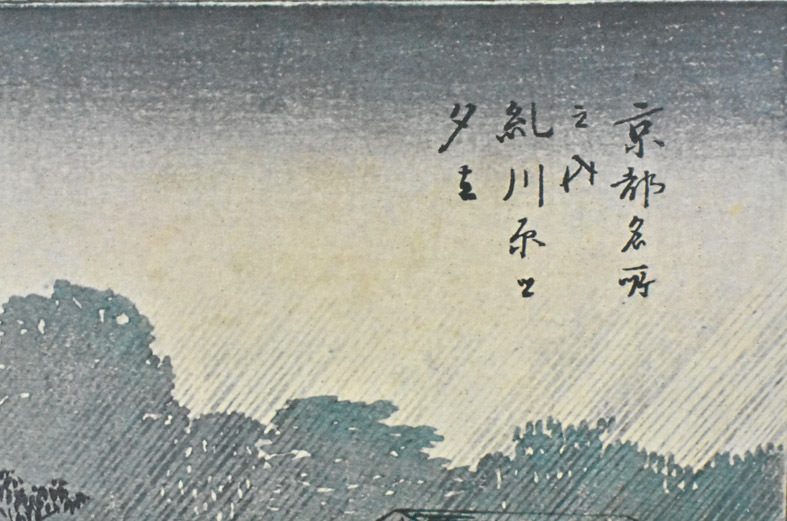 京都名所
之内
糺川原之
夕立